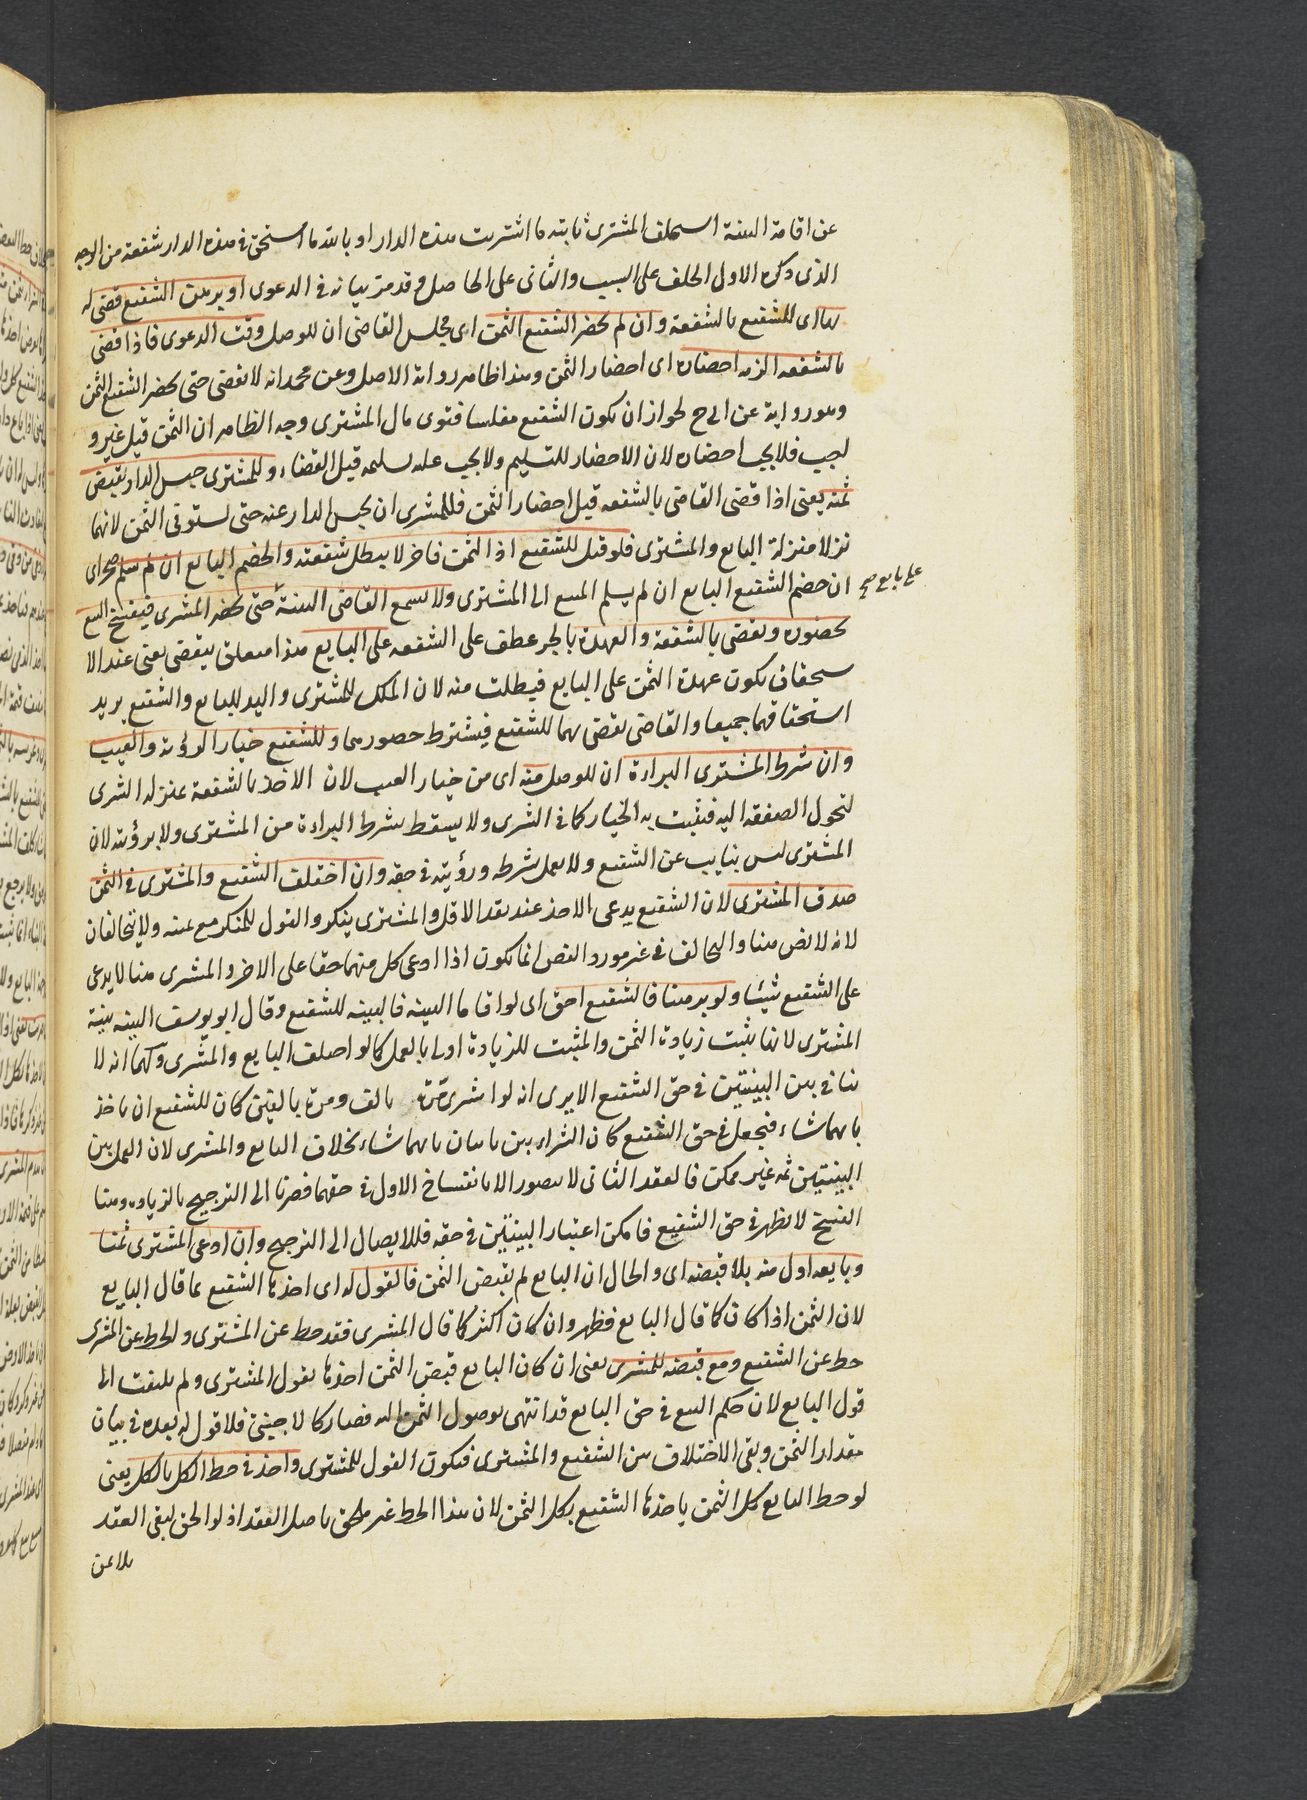 عن اقامة البينة استحلف المشتري ثابتة ما اشتريت هذه الدار او بالله ما استحق في هذه الدار شفعة من الوجه
الذي ذكره الاول الحلف على السبب والثاني على الحاصل وقد مر بيانه في الدعوى او برهن الشفيع قضى له
بها اى للشفيع بالشفعة وان لم يحضر الشفيع الثمن اى مجلس القاضى ان للوصل وقت الدعوى فاذا قضى
بالشفعة الزمه احضاره اى احضار الثمن وهذا ظاهر رواية الاصل وعن محمد انه لا يقضى حتى يحضر الشفيع الثمن
وهو رواية عن ابى ح لجواز ان يكون الشفيع مفلسا فتوى مال المشترى وجه الظاهر ان الثمن قبل غير و
اجب فلا يجب احضاره لان الاحضار للتسليم ولا يجب عليه تسليمه قبل القضاء وللمشترى حبس الدار لقبض
ثمنه يعنى اذا قضى القاضى بالشفعة قبل احضار الثمن فللمشرى ان يحبس الدار عنه حتى يستوفى الثمن لانهما
نزلا منزلة البايع والمشترى فلو قيل للشفيع اد الثمن فاخر لا يبطل شفعته والخصم البايع ان لم يسلم صح اى
ان خصم الشفيع البايع ان لم يسلم المبيع الى المشترى ولا يسمع القاضى البينة حتى يحضر المشرى فيفسخ البيع
على بايع صح
بحضوره ويقضى بالشفعة والعهدة بالجر عطف على الشفعة على البايع هذا متعلق بيقضى يعنى عند الا
ستحقاق يكون عهدة الثمن على البايع فيطلب منه لان الملك للمشترى واليد للبايع والشفيع يريد
استحقاقهما جميعا والقاضى يقضى بهما للشفيع فيشترط حضورهما وللشفيع خيار الرؤية والعيب
وان شرط المشترى البراءة ان للوصل منه اى من خيار العيب لان الاخذ بالشفعة بمنزلة الشرى
لتحول الصفقة اليه فيثبت به الخيار كما في الشرى ولا يسقط بشرط البراءة من المشترى ولا برؤيته لان
المشترى ليس بنايب عن الشفيع ولا يعمل شرطه ورؤيته في حقه وان اختلف الشفيع والمشترى في الثمن
صدق المشترى لان الشفيع يدعى الاخذ عند نقد الاقل والمشترى ينكر والقول للمنكر مع يمينه ولا يتحالفان
لانه لا نص هنا والتحالف في غير مورد النص انما يكون اذا ادعى كل منهما حقا على الاخر والمشرى هنا لا يدعى
على الشفيع شيئا ولو برهنا فالشفيع احق اى لو اقاما البينة فالبينة للشفيع وقال ابو يوسف البينة بينة
المشترى لانها تثبت زيادة الثمن والمثبت للزيادة اولى بالعمل كما لو اختلف البايع والمشرى ولهما انه لا
تنافى بين البينتين في حق الشفيع الا يرى انه لو اشرى مرة بالف ومرة بالفين كان للشفيع ان ياخذ
بايهما شاء فيجعل في حق الشفيع كان الشراء بين ثابتان بايهما شاء بخلاف البايع والمشرى لان العمل بين
البينتين ثمه غير ممكن فالعقد الثانى لا يتصور الا بانفساخ الاول في حقهما فصرنا الى الترجيح بالزيادة وهنا
الفسخ لا يظهر في حق الشفيع فامكن اعتبار البينتين في حقه فلا يصار الى الترجيح وان ادعى المشترى ثمنا
وبايعه اقل منه بلا قبضه اى والحال ان البايع لم يقبض الثمن فالقول له اى اخذها الشفيع بما قال البايع
لان الثمن اذا كان كما قال البايع فظهر وان كان اكثر كما قال المشرى فقد حط عن المشترى والحط عن المشرى
حط عن الشفيع ومع قبضه للمشرى يعنى ان كان البايع قبض الثمن اخذها بقول المشترى ولم يلتفت الى
قول البايع لان حكم البيع في حق البايع قد انتهى بوصول الثمن اليه فصار كالاجنبى فلا قول له بعده في بيان
مقدار الثمن وبقى الاختلاف بين الشفيع والمشترى فيكون القول للمشترى واخذ في حط الكل بالكل يعنى
لو حط البايع كل الثمن ياخذها الشفيع بكل الثمن لان هذا الحط غير ملحق باصل العقد اذ لو الحق لبقى العقد
بلا ثمن